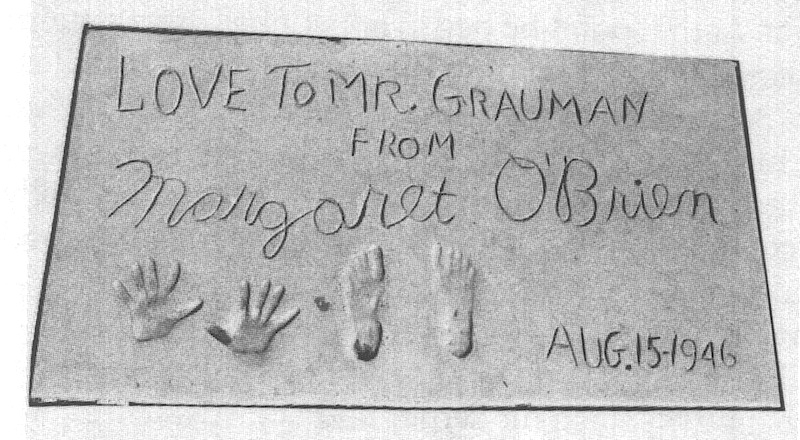 LOVE TO MR. GRAUMAN
FROM
Margaret O'Brien
AUG. 15-1946